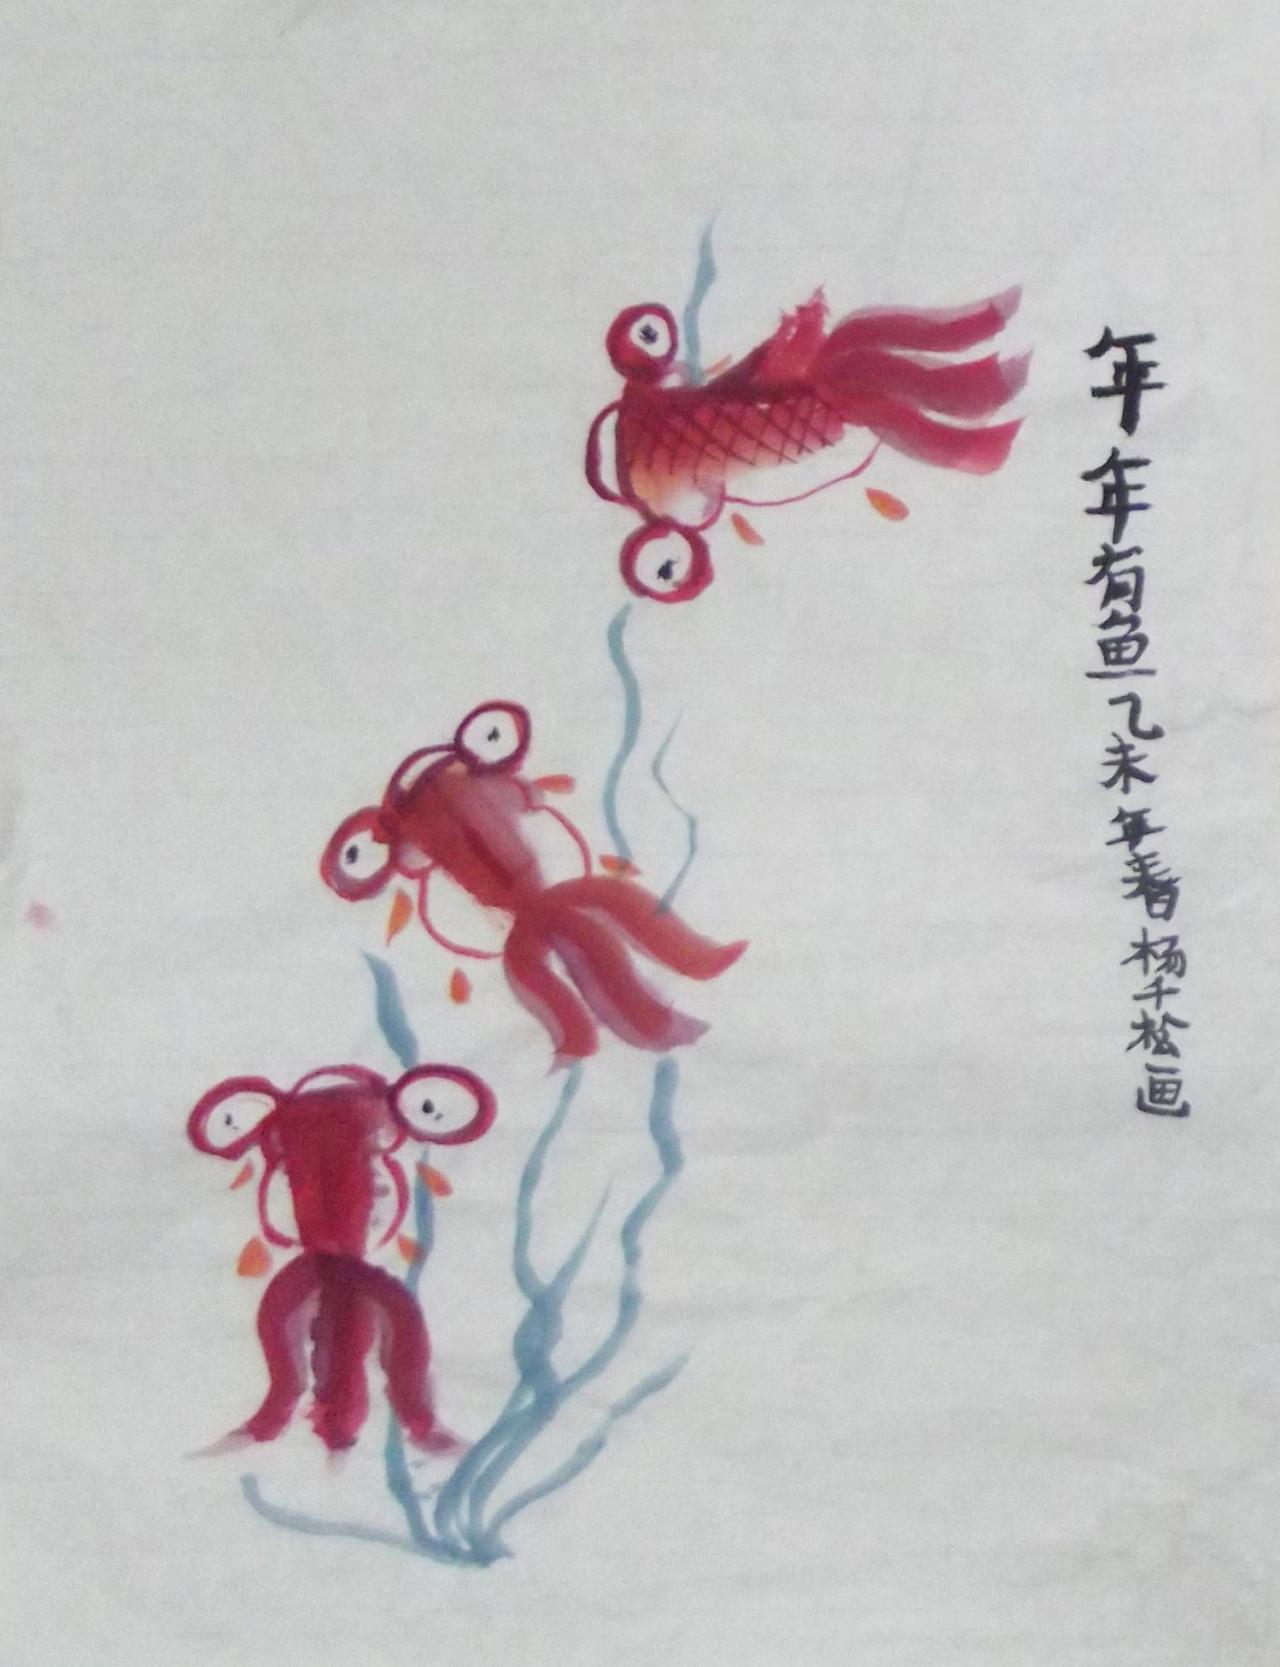 年年有鱼乙未年春杨千松画